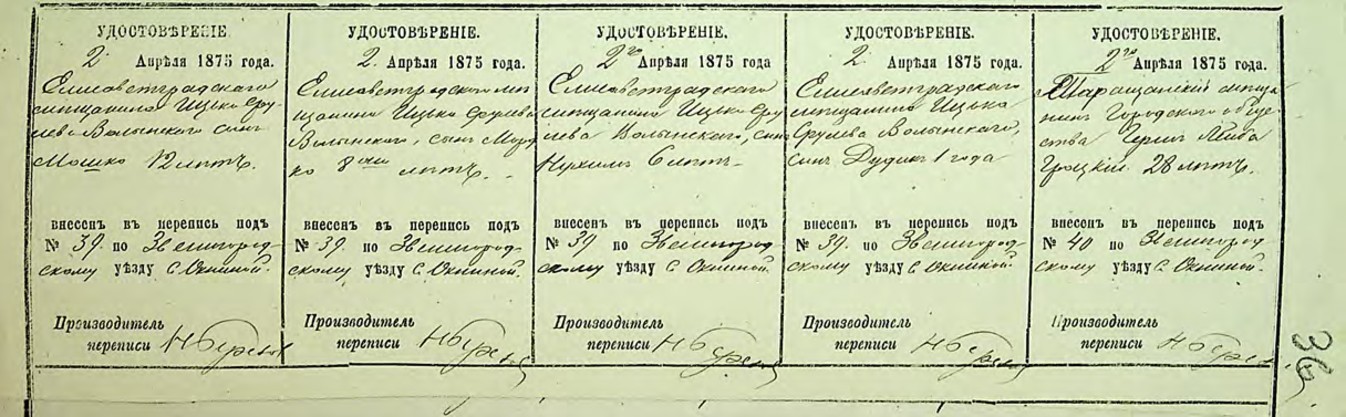 УДОСТОВѢРЕНІЕ.
2. Апрѣля 1875 года.
Елисаветградскаго
мѣщанина Ицько Сру-
лева Волынскаго сынъ
Мошко 12 лѣтъ.
внесенъ въ перепись подъ
№ 39. по Звенигород-
скому уѣзду С.
Производитель
переписи
УДОСТОВѢРЕНІЕ.
2. Апрѣля 1875 года.
Елисаветградскаго мѣ-
щанина Ицько Срулева
Волынскаго, сынъ Мор-
ко 8 лѣтъ.
внесенъ въ перепись подъ
№ 39. по Звенигород-
скому уѣзду С.
Производитель
переписи
УДОСТОВѢРЕНІЕ.
2го Апрѣля 1875 года.
Елисаветградскаго
мѣщанина Ицько Сру-
лева Волынскаго, сынъ
Нухимъ 6 лѣтъ
внесенъ въ перепись подъ
№ 39 по Звенигород-
скому уѣзду С.
Производитель
переписи
УДОСТОВѢРЕНІЕ.
2. Апрѣля 1875 года.
Елисаветградскаго
мѣщанина Ицька
Срулева Волынскаго,
сынъ Дудик 1 года
внесенъ въ перепись подъ
№ 39. по Звенигород-
скому уѣзду С.
Производитель
переписи
УДОСТОВѢРЕНІЕ.
2го Апрѣля 1875 года.
Таращанскій мѣща-
нинъ Городского обще-
ства Лейба
28 лѣтъ.
внесенъ въ перепись подъ
№ 40 по Звенигород-
скому уѣзду С.
Производитель
переписи
36